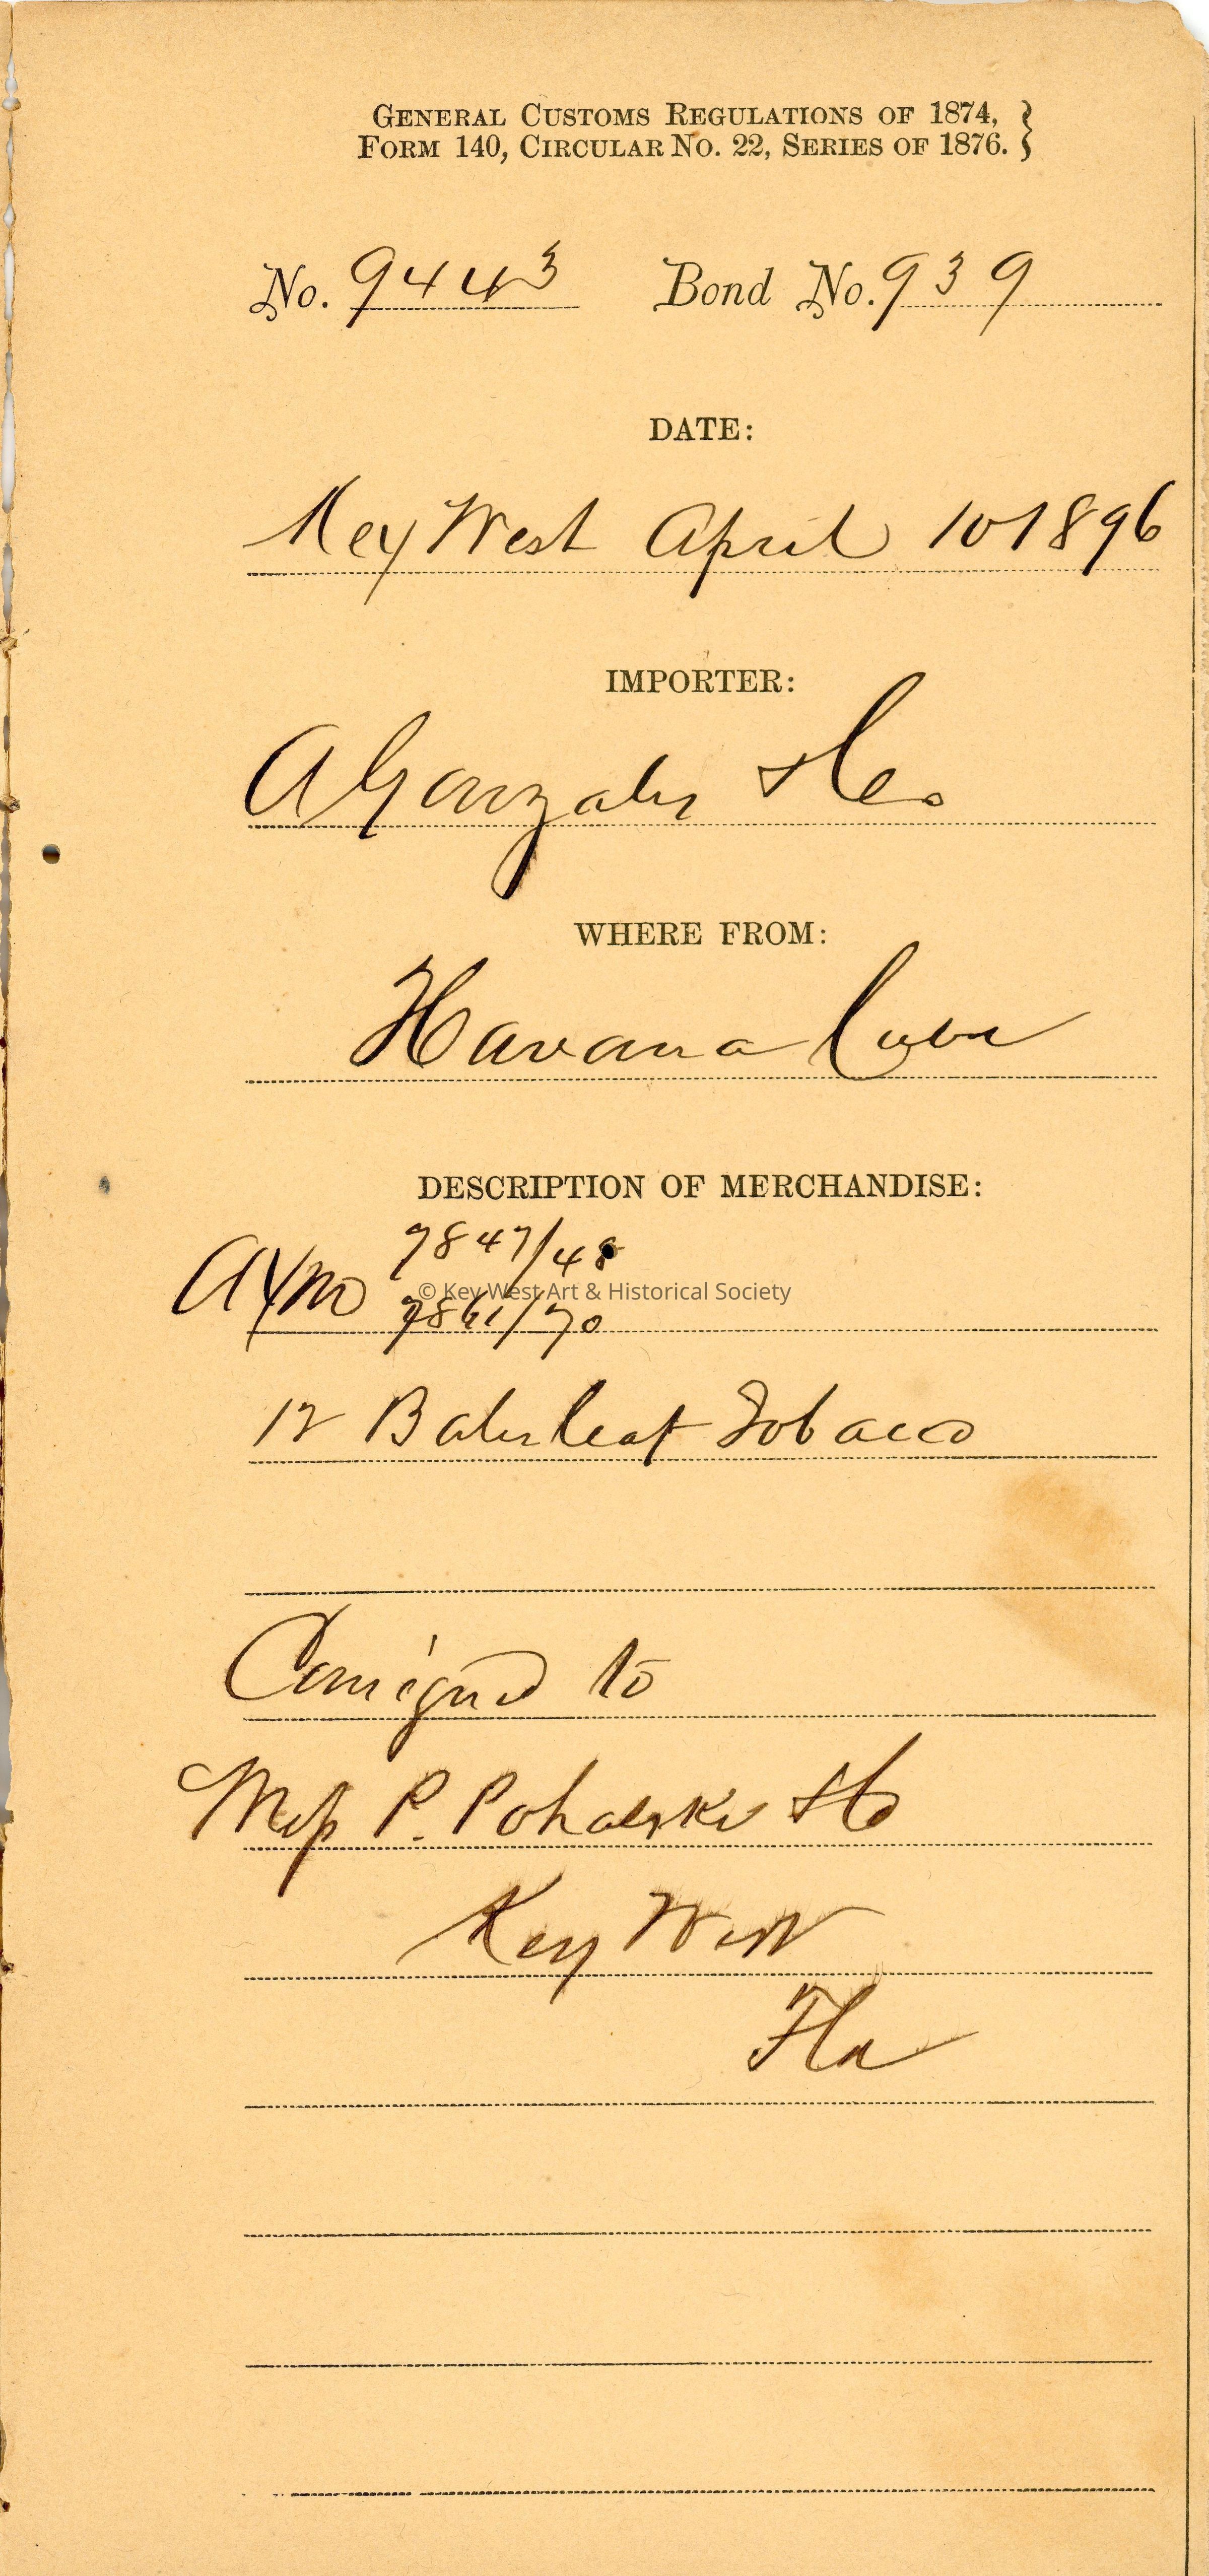 GENERAL CUSTOMS REGULATIONS OF 1874,
FORM 140, CIRCULAR NO. 22, SERIES OF 1876.
No. 9443 Bond No. 939
DATE:
Key West April 10 1896
IMPORTER:
A Gonzalez & Co
WHERE FROM:
Havana Cuba
DESCRIPTION OF MERCHANDISE:
7847/48
© Key West Art & Historical Society
7861/70
12 Bales leaf Tobacco
Consigned to
Mess P. Pohalski & Co
Key West
Fla